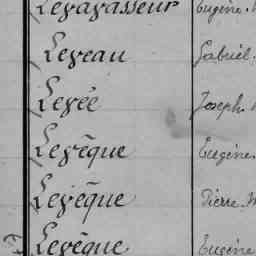 Levavasseur Eugène.
Leveau Gabriel.
Levée Joseph.
Levêque Eugène.
Levêque Pierre.
Levêque Eugène